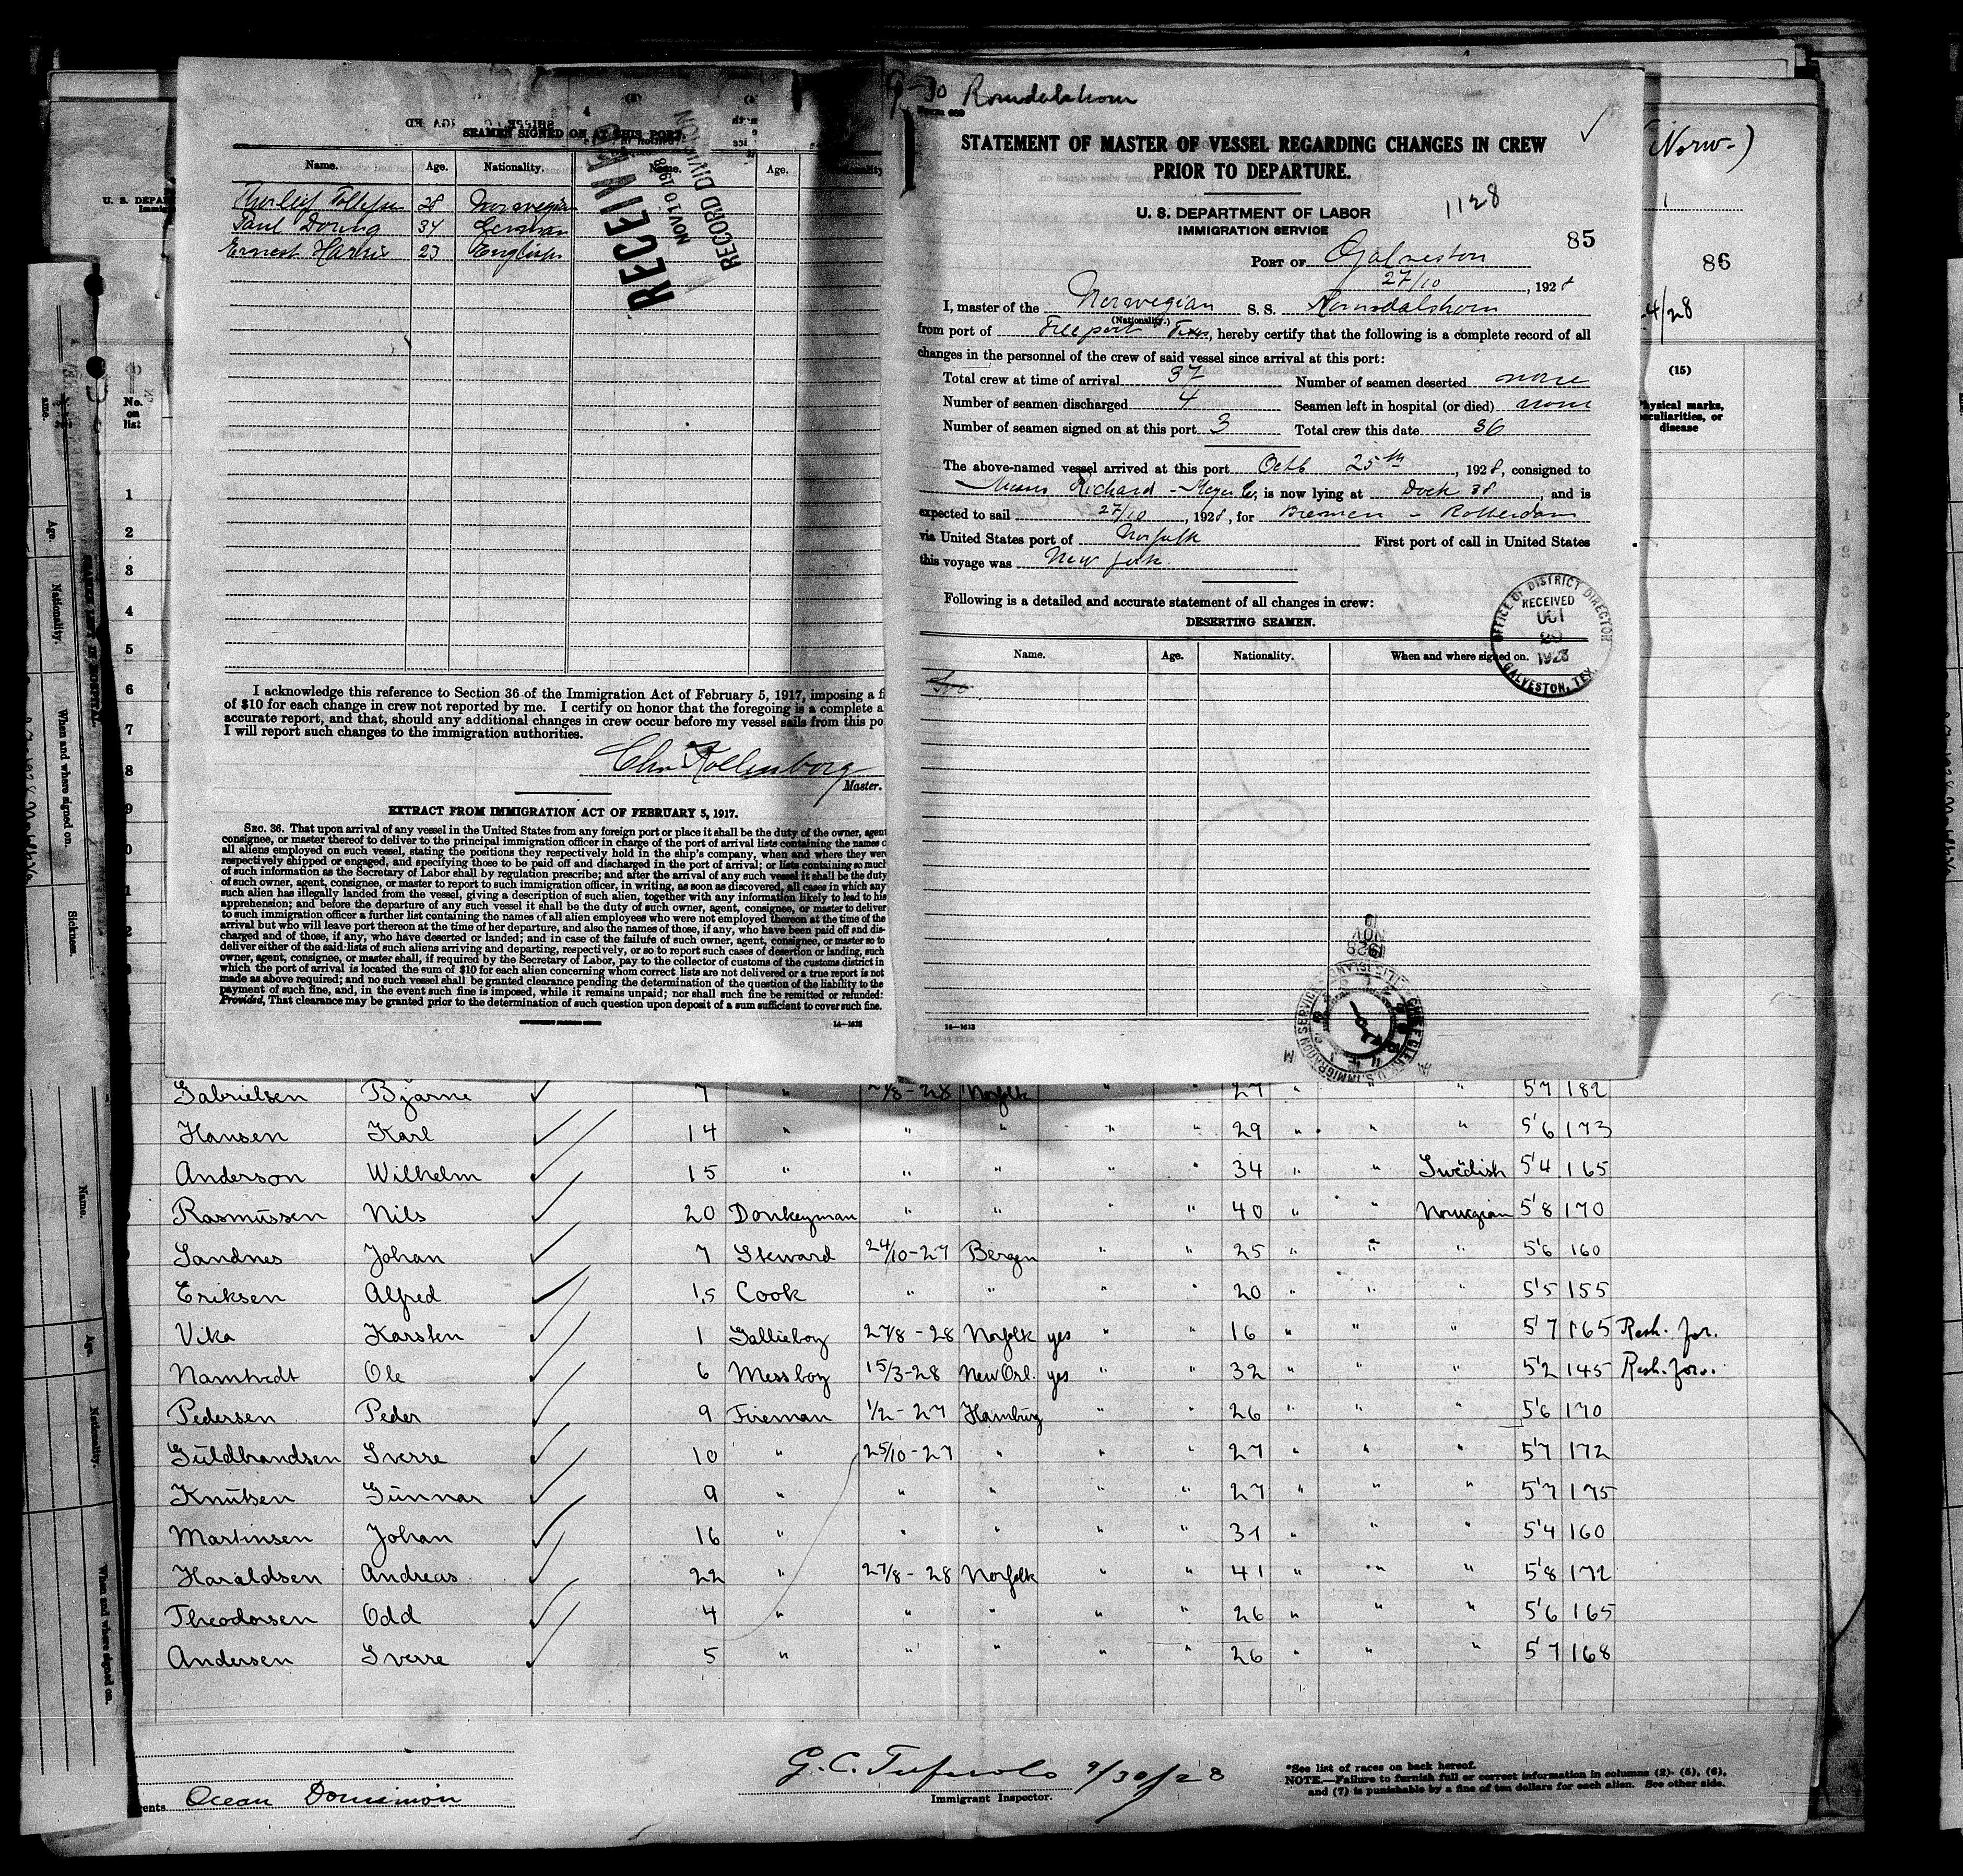 SEAMEN SIGNED ON AT THIS PORT.
Name. Age. Nationality. Name. Age. Nationality
Thorleif Tollefsen 28 Norwegian
Paul Döring 34 German
Ernest Harris 23 English
RECEIVED
NOV 10 1928
RECORD DIVISION
I acknowledge this reference to Section 36 of the Immigration Act of February 5, 1917, imposing a fi
of $10 for each change in crew not reported by me. I certify on honor that the foregoing is a complete a
accurate report, and that, should any additional changes in crew occur before my vessel sails from this po
I will report such changes to the immigration authorities.
Master.
EXTRACT FROM IMMIGRATION ACT OF FEBRUARY 5, 1917.
SEC. 36. That upon arrival of any vessel in the United States from any foreign port or place it shall be the duty of the owner, agent
consignee, or master thereof to deliver to the principal immigration officer in charge of the port of arrival lists containing the names o
all aliens employed on such vessel, stating the positions they respectively hold in the ship's company, when and where they were
respectively shipped or engaged, and specifying those to be paid off and discharged in the port of arrival; or lists containing so much
of such information as the Secretary of Labor shall by regulation prescribe; and after the arrival of any such vessel it shall be the duty
of such owner, agent, consignee, or master to report to such immigration officer, in writing, as soon as discovered, all cases in which any
such alien has illegally landed from the vessel, giving a description of such alien, together with any information likely to lead to his
apprehension; and before the departure of any such vessel it shall be the duty of such owner, agent, consignee, or master to deliver
to such immigration officer a further list containing the names of all alien employees who were not employed thereon at the time of the
arrival but who will leave port thereon at the time of her departure, and also the names of those, if any, who have been paid off and dis-
charged and of those, if any, who have deserted or landed; and in case of the failure of such owner, agent, consignee, or master so to
deliver either of the said lists of such aliens arriving and departing, respectively, or so to report such cases of desertion or landing, such
owner, agent, consignee, or master shall, if required by the Secretary of Labor, pay to the collector of customs of the customs district in
which the port of arrival is located the sum of $10 for each alien concerning whom correct lists are not delivered or a true report is not
made as above required; and no such vessel shall be granted clearance pending the determination of the question of the liability to the
payment of such fine, and, in the event such fine is imposed, while it remains unpaid; nor shall such fine be remitted or refunded:
Provided, That clearance may be granted prior to the determination of such question upon deposit of a sum sufficient to cover such fine.
14—1613
Romsdalshorn
STATEMENT OF MASTER OF VESSEL REGARDING CHANGES IN CREW
PRIOR TO DEPARTURE.
U. S. DEPARTMENT OF LABOR
IMMIGRATION SERVICE
1128
85
PORT OF Galveston
27/10, 1928
I, master of the Norwegian S. S. Romsdalshorn
(Nationality.)
from port of Freeport Texas, hereby certify that the following is a complete record of all
changes in the personnel of the crew of said vessel since arrival at this port:
Total crew at time of arrival 37 Number of seamen deserted none
Number of seamen discharged 4 Seamen left in hospital (or died) none
Number of seamen signed on at this port 3 Total crew this date 36
The above-named vessel arrived at this port Octb 25th, 1928, consigned to
Messrs Richard - Meyer Co, is now lying at Dock 38, and is
expected to sail 27/10, 1928, for Bremen - Rotterdam
via United States port of Norfolk First port of call in United States
this voyage was New York
Following is a detailed and accurate statement of all changes in crew:
DESERTING SEAMEN.
Name. Age. Nationality. When and where signed on.
OFFICE OF DISTRICT DIRECTOR
RECEIVED
OCT
1928
GALVESTON, TEX.
14—1613
(Norw-)
86
(15)
Physical marks, peculiarities, or disease
No. on list
1
2
3
4
5
6
7
8
9
Gabrielsen Bjarne 7 " 27/8-28 Norfolk " " 27 " " " 5'7 182
Hansen Karl 14 " " " " " 29 " " " 5'6 173
Anderson Wilhelm 15 " " " " " 34 " " Swedish 5'4 165
Rasmussen Nils 20 Donkeyman " " " 40 " " Norwegian 5'8 170
Sandnes Johan 7 Steward 24/10-27 Bergen " " 25 " " " 5'6 160
Eriksen Alfred 1,5 Cook " " " " 20 " " " 5'5 155
Vika Karsten 1 Gallieboy 27/8-28 Norfolk yes " " 16 " " " 5'7 165 Resh. for.
Namtvedt Ole 6 Messboy 15/3-28 New Orl. yes " " 32 " " " 5'2 145 Resh. for.
Pedersen Peder 9 Fireman 1/2-27 Hamburg " " 26 " " " 5'6 170
Guldbrandsen Sverre 10 " 25/10-27 " " " 27 " " " 5'7 172
Knutsen Gunnar 9 " " " " " 27 " " " 5'7 175
Martinsen Johan 16 " " " " " 31 " " " 5'4 160
Haraldsen Andreas 22 " 27/8-28 Norfolk " " 41 " " " 5'8 172
Theodorsen Odd 4 " " " " " 26 " " " 5'6 165
Andersen Sverre 5 " " " " " 26 " " " 5'7 168
Ocean Dominion
9/30/28
Immigrant Inspector.
*See list of races on back hereof.
NOTE.—Failure to furnish full or correct information in columns (2), (5), (6),
and (7) is punishable by a fine of ten dollars for each alien. See other side.
SEAMEN LEFT IN HOSPITAL.
Age. Nationality. When and where signed on. Sickness.
Name. Age. Nationality. When and where signed on.